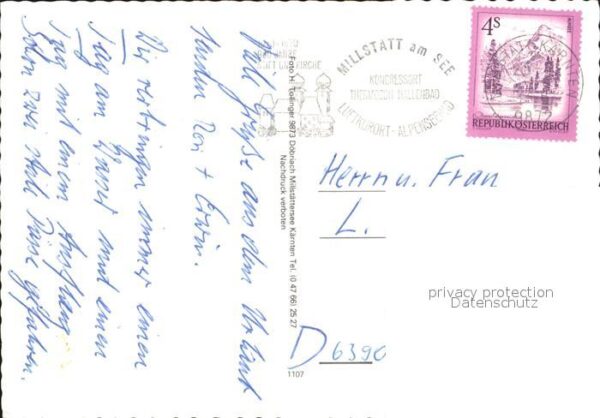 Viele Grüße aus dem Urlaub
senden Ron + Erwin.
Wir verbringen immer einen
Tag am Wasser und einen
Tag mit einem Ausflug.
Schon zwei steile Pässe gefahren.
Foto H. Tollinger 9873 Döbriach Millstättersee Kärnten Tel. (0 47 66) 25 27
Nachdruck verboten
1107
MILLSTATT am SEE
KONGRESSORT
LUFTKURORT - ALPENSEEBAD
9872
4s
REPUBLIK ÖSTERREICH
Herrn u. Frau
L.
D 6390
privacy protection
Datenschutz